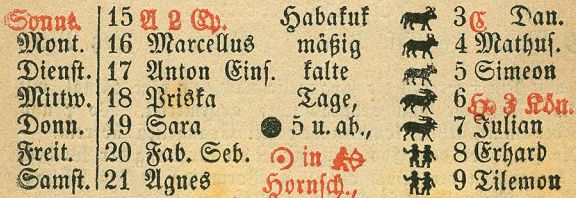 Sonnt. 15 A 2 Ep. Habakuk 3 C Dan.
Mont. 16 Marcellus mäßig 4 Mathus.
Dienst. 17 Anton Eins. kalte 5 Simeon
Mittw. 18 Priska Tage, 6 Hr. 3 Kön.
Donn. 19 Sara 5 u. ab., 7 Julian
Freit. 20 Fab. Seb. in 8 Erhard
Samst. 21 Agnes Hornsch., 9 Tilemon